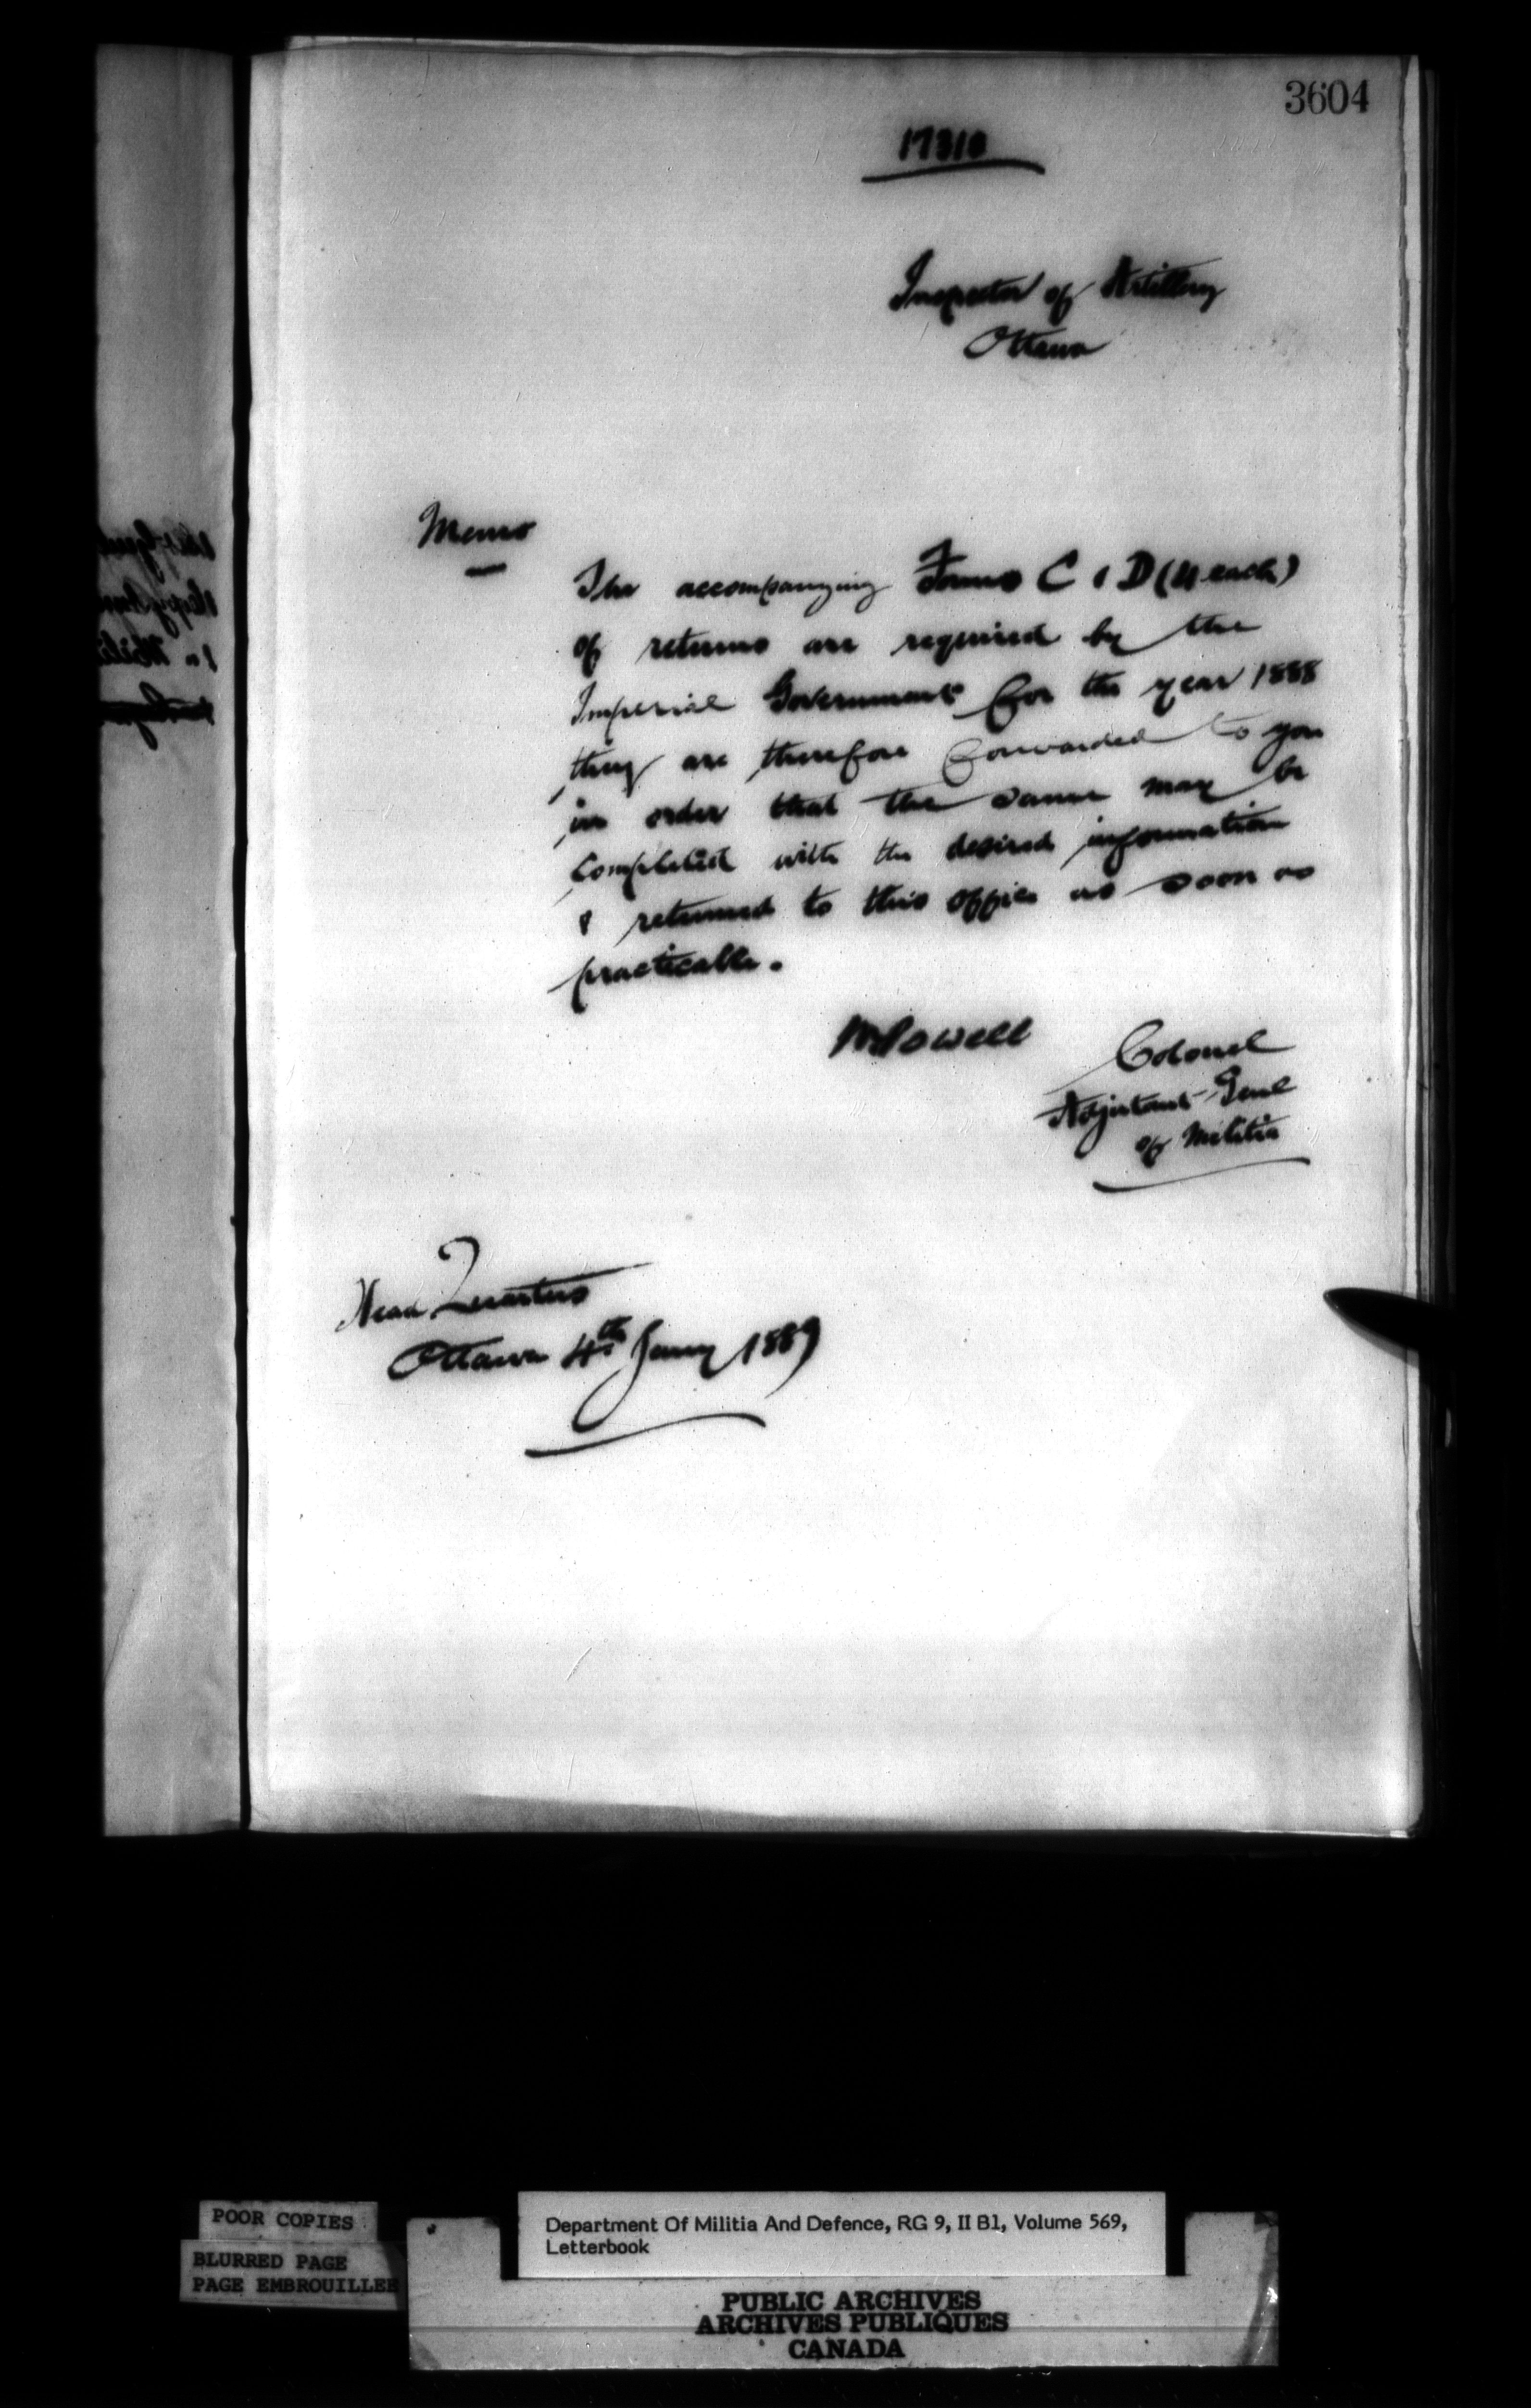 3604
17310
Inspector of Artillery
Ottawa
Memo
The accompanying Forms C & D (4 each)
of returns are required by the
Imperial Government for the year 1888
they are therefore forwarded to you
in order that the same may be
completed with the desired information
& returned to this office as soon as
practicable.
WPowell Colonel
Adjutant-Genl
of Militia
Head Quarters
Ottawa 4th Jany 1889
POOR COPIES
BLURRED PAGE
PAGE EMBROUILLEE
Department Of Militia And Defence, RG 9, II B1, Volume 569,
Letterbook
PUBLIC ARCHIVES
ARCHIVES PUBLIQUES
CANADA